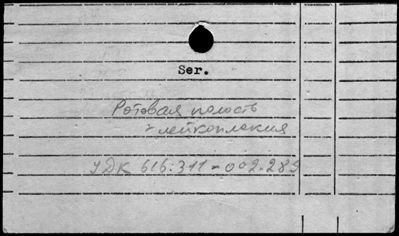 Ser.
Ротовая полость
лейкоплакия
УДК 616.311-002.283